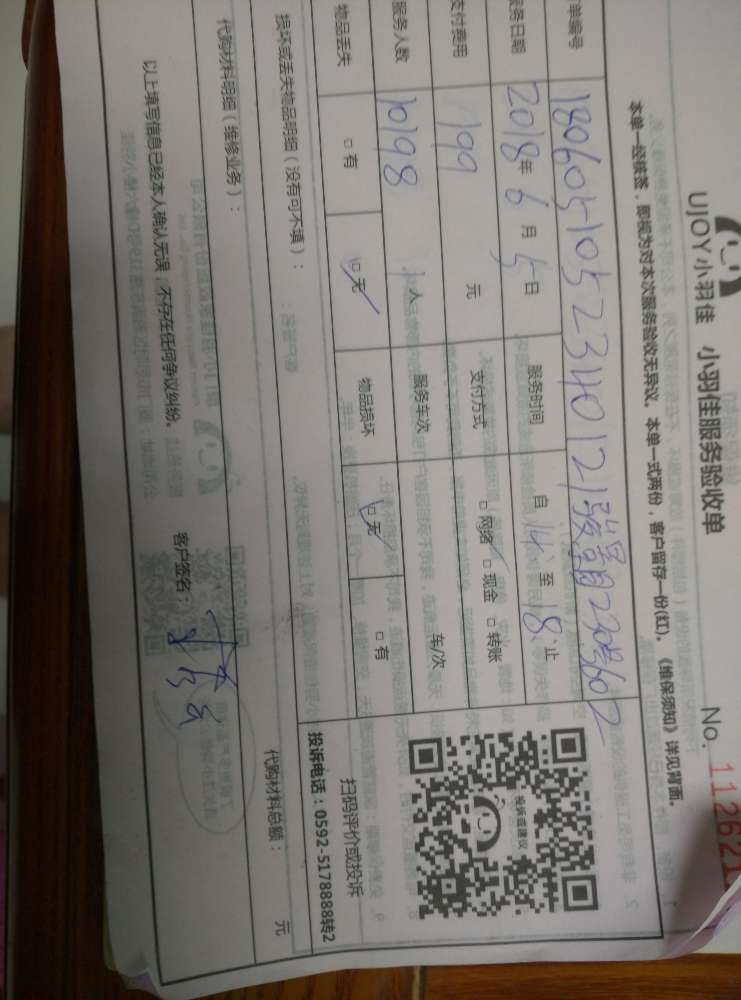 UJOY小羽佳 小羽佳服务验收单 No. 112621
本单一经签签，即视为对本次服务验收无异议。本单一式两份，客户留存一份(红)。《维保须知》详见背面。
单编号 180605105234012
服务日期 2018年6月5日 服务时间 自14至18止
支付费用 199 元 支付方式 □网络 □现金 □转账
服务人数 10198 人 服务车次 车/次
物品丢失 □有 □无 物品损坏 □无 □有
投诉或建议
扫码评价或投诉
投诉电话：0592-5178888转2
损坏或丢失物品明细（没有可不填）：
代购材料明细（维修业务）： 代购材料总额： 元
以上填写信息已经本人确认无误，不存在任何争议纠纷。 客户签名：